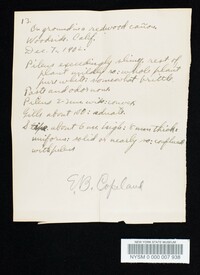 12
On ground in a redwood cañon
Woodside, Calif.
Dec. 7, 1902.
Pileus exceedingly slimy, rest of
plant mildly so; whole plant
pure white, somewhat brittle
Taste and odor none
Pileus 2 cm wide, convex
Gills about adnate
Stipe about 5 cm long & 5 mm thick,
uniform, solid or nearly so, confluent
with pileus
E.B. Copeland
NEW YORK STATE MUSEUM
NYSM 0 000 007 938